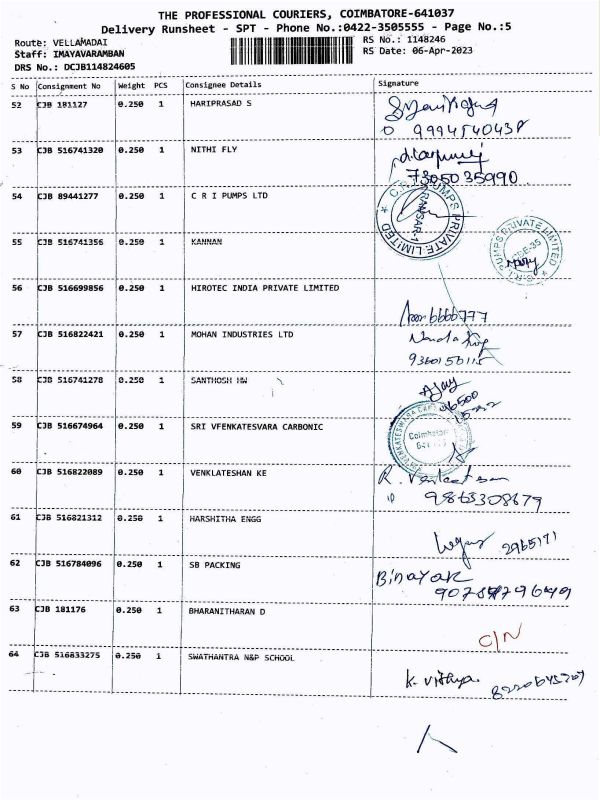 THE PROFESSIONAL COURIERS, COIMBATORE-641037
Delivery Runsheet - SPT - Phone No.:0422-3505555 - Page No.:5
Route: VELLAMADAI
RS No.: 1148246
Staff: IMAYAVARAMBAN
RS Date: 06-Apr-2023
DRS No.: DCJB114824605
S No Consignment No Weight PCS Consignee Details Signature
52 CJB 181127 0.250 1 HARIPRASAD S
9994540438
53 CJB 516741320 0.250 1 NITHI FLY
7305035990
54 CJB 89441277 0.250 1 C R I PUMPS LTD
PUMPS PRIVATE LIMITED
55 CJB 516741356 0.250 1 KANNAN
PUMPS PRIVATE LIMITED
56 CJB 516699856 0.250 1 HIROTEC INDIA PRIVATE LIMITED
57 CJB 516822421 0.250 1 MOHAN INDUSTRIES LTD
58 CJB 516741278 0.250 1 SANTHOSH HW
Ajay
59 CJB 516674964 0.250 1 SRI VFENKATESVARA CARBONIC
Coimbatore
60 CJB 516822089 0.250 1 VENKLATESHAN KE
9863308679
61 CJB 516821312 0.250 1 HARSHITHA ENGG
2965171
62 CJB 516784096 0.250 1 SB PACKING
BiNAYAK
63 CJB 181176 0.250 1 BHARANITHARAN D
C/N
64 CJB 516833275 0.250 1 SWATHANTRA N&P SCHOOL
K. Vithya